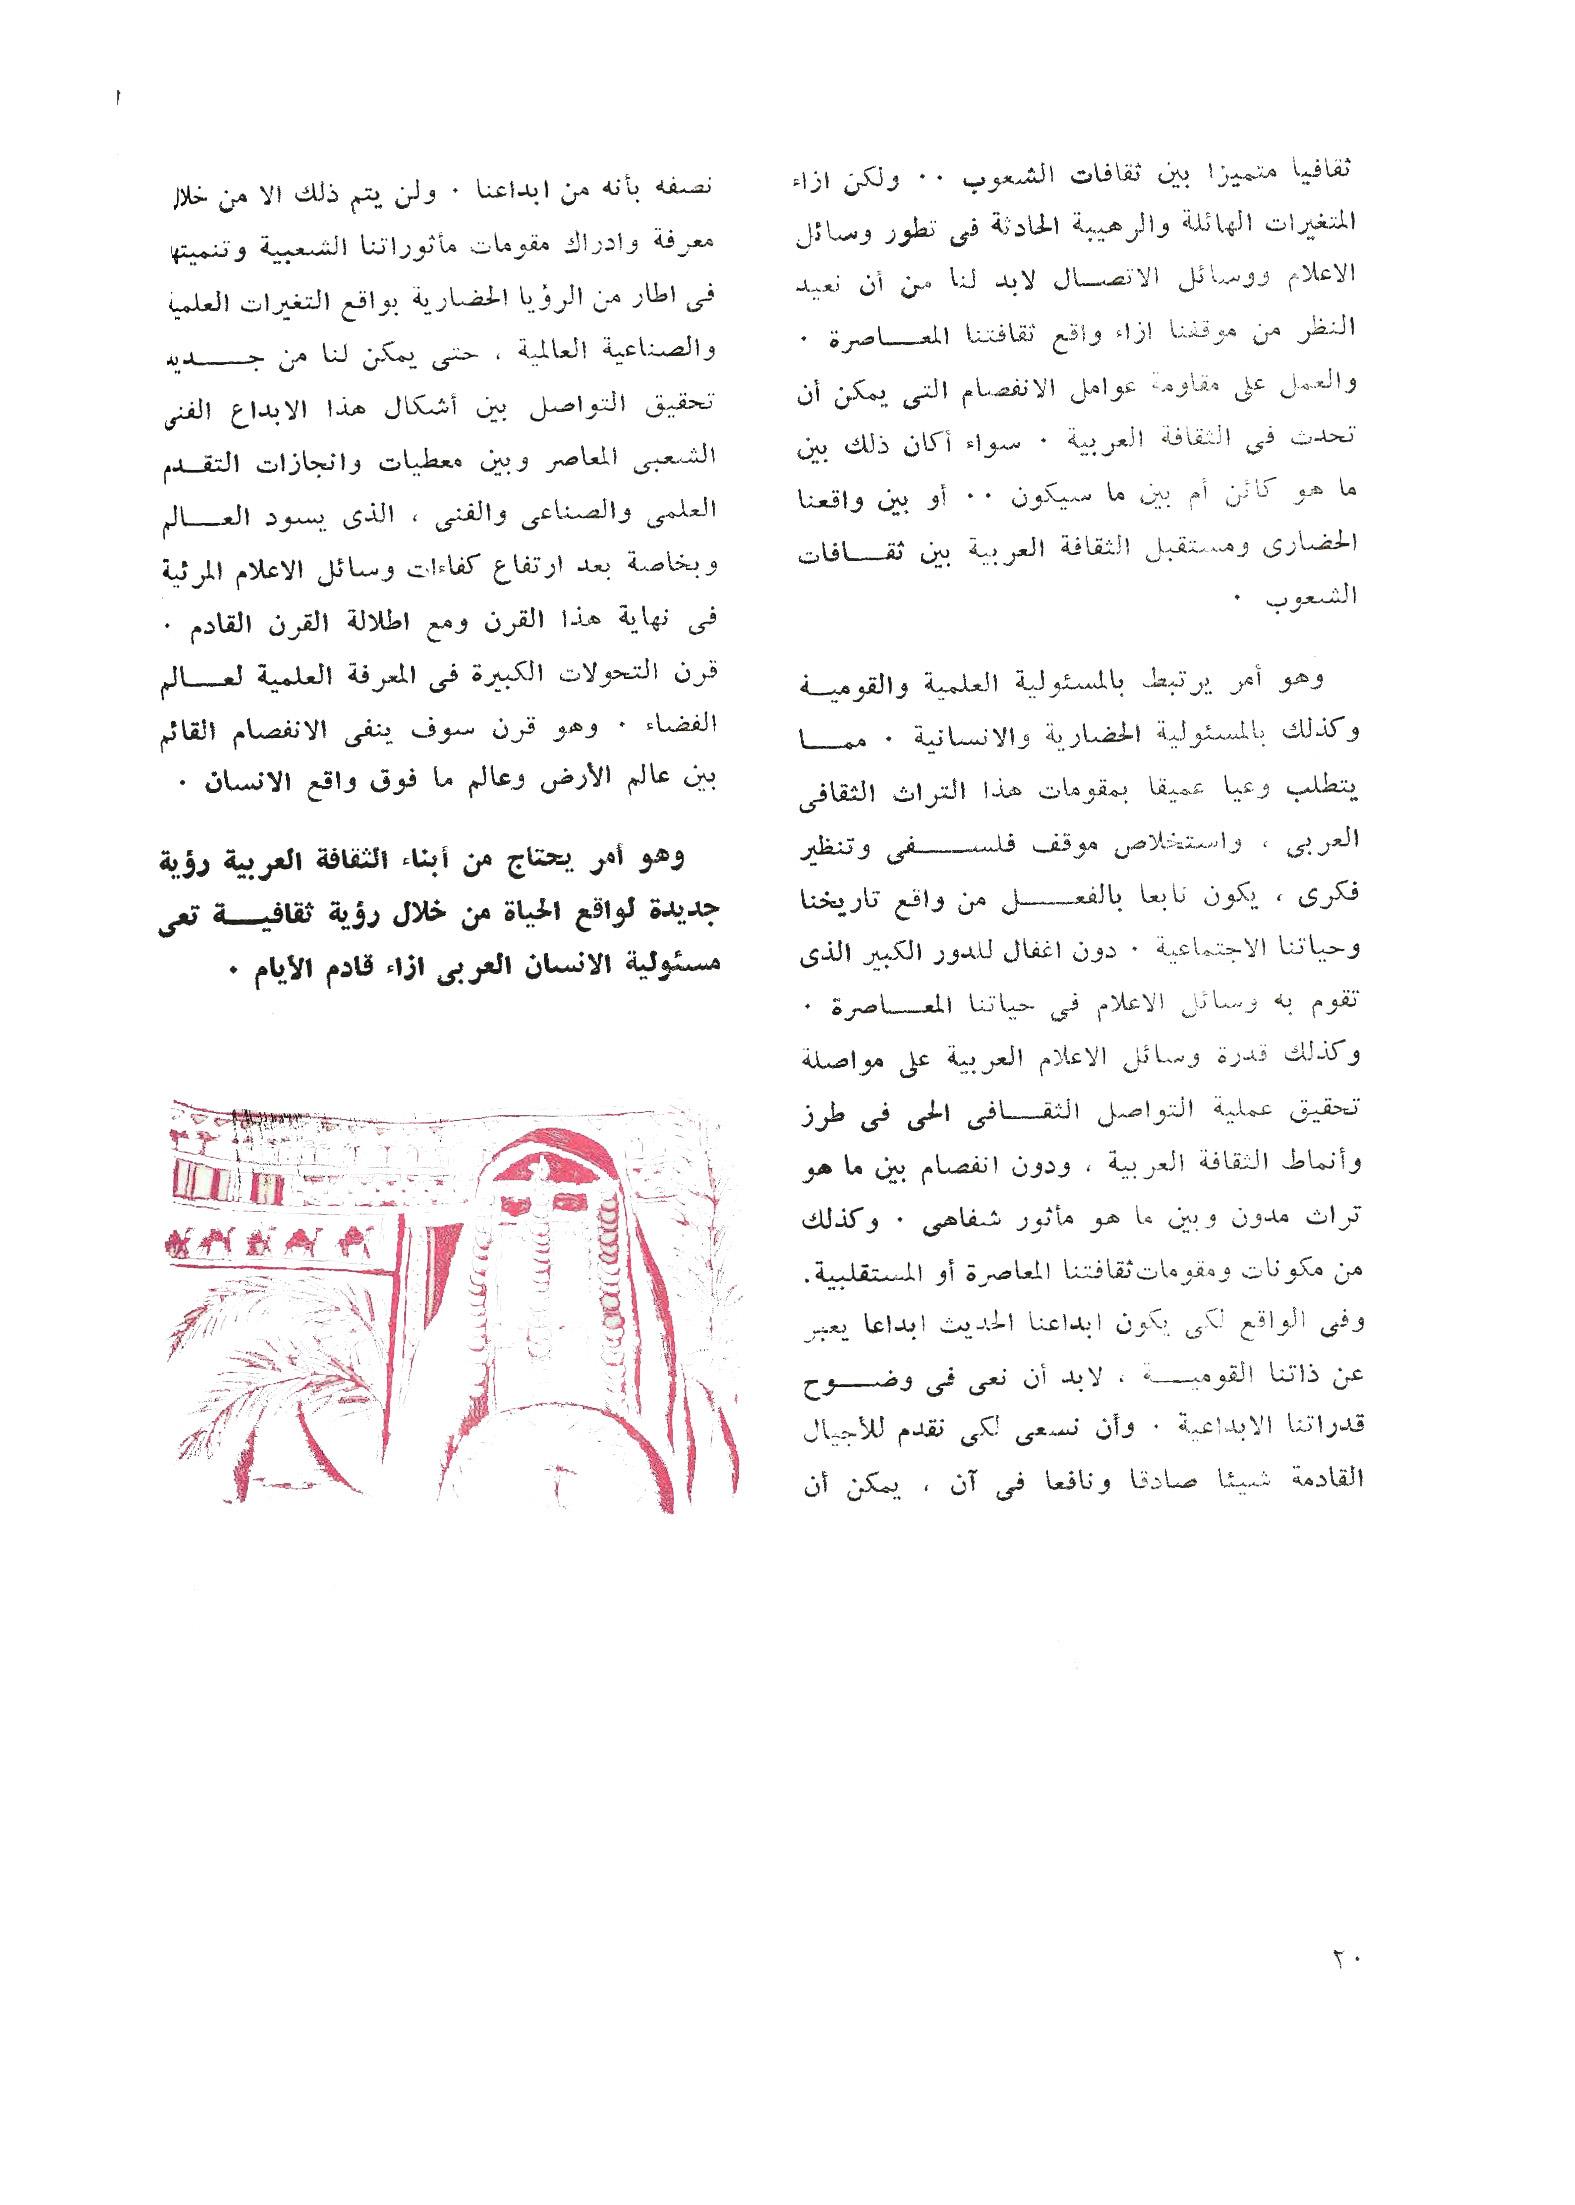 ثقافيا متميزا بين ثقافات الشعوب ٠٠ ولكن ازاء
المتغيرات الهائلة والرهيبة الحادثة فى تطور وسائل
الاعلام ووسائل الاتصال لابد لنا من أن نعيد
النظر من موقفنا ازاء واقع ثقافتنا المعاصرة ٠
والعمل على مقاومة عوامل الانفصام التى يمكن أن
تحدث فى الثقافة العربية ٠ سواء أكان ذلك بين
ما هو كائن أم بين ما سيكون ٠٠ أو بين واقعنا
الحضارى ومستقبل الثقافة العربية بين ثقافات
الشعوب ٠
وهو أمر يرتبط بالمسئولية العلمية والقومية
وكذلك بالمسئولية الحضارية والانسانية ٠ مما
يتطلب وعيا عميقا بمقومات هذا التراث الثقافى
العربى ، واستخلاص موقف فلسفى وتنظير
فكرى ، يكون نابعا بالفعل من واقع تاريخنا
وحياتنا الاجتماعية ٠ دون اغفال للدور الكبير الذى
تقوم به وسائل الاعلام فى حياتنا المعاصرة ٠
وكذلك قدرة وسائل الاعلام العربية على مواصلة
تحقيق عملية التواصل الثقافى الحى فى طرز
وأنماط الثقافة العربية ، ودون انفصام بين ما هو
تراث مدون وبين ما هو مأثور شفاهى ٠ وكذلك
من مكونات ومقومات ثقافتنا المعاصرة أو المستقلبية.
وفى الواقع لكى يكون ابداعنا الحديث ابداعا يعبر
عن ذاتنا القومية ، لابد أن نعى فى وضوح
قدراتنا الابداعية ٠ وأن نسعى لكى نقدم للأجيال
القادمة شيئا صادقا ونافعا فى آن ، يمكن أن
نصفه بأنه من ابداعنا ٠ ولن يتم ذلك الا من خلال
معرفة وادراك مقومات مأثوراتنا الشعبية وتنميتها
فى اطار من الرؤيا الحضارية بواقع التغيرات العلمية
والصناعية العالمية ، حتى يمكن لنا من جديد
تحقيق التواصل بين أشكال هذا الابداع الفنى
الشعبى المعاصر وبين معطيات وانجازات التقدم
العلمى والصناعى والفنى ، الذى يسود العالم
وبخاصة بعد ارتفاع كفاءات وسائل الاعلام المرئية
فى نهاية هذا القرن ومع اطلالة القرن القادم ٠
قرن التحولات الكبيرة فى المعرفة العلمية لعالم
الفضاء ٠ وهو قرن سوف ينفى الانفصام القائم
بين عالم الأرض وعالم ما فوق واقع الانسان ٠
وهو أمر يحتاج من أبناء الثقافة العربية رؤية
جديدة لواقع الحياة من خلال رؤية ثقافية تعى
مسئولية الانسان العربى ازاء قادم الأيام ٠
٢٠